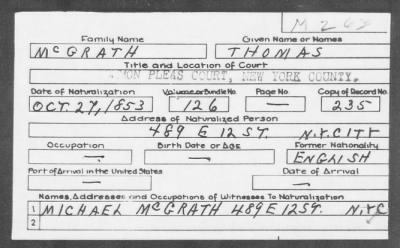 Family Name Given Name or Names
McGRATH THOMAS
Title and Location of Court
MON PLEAS COURT, NEW YORK COUNTY.
Date of Naturalization Volume or Bundle No. Page No. Copy of Record No.
OCT. 27, 1853 126 — 235
Address of Naturalized Person
489 E 12 ST. N.Y. CITY
Occupation Birth Date or Age Former Nationality
— — ENGLISH
Port of Arrival in the United States Date of Arrival
— —
Names, Addresses and Occupations of Witnesses To Naturalization
1 MICHAEL McGRATH 489 E 12 ST. N.Y.C
2